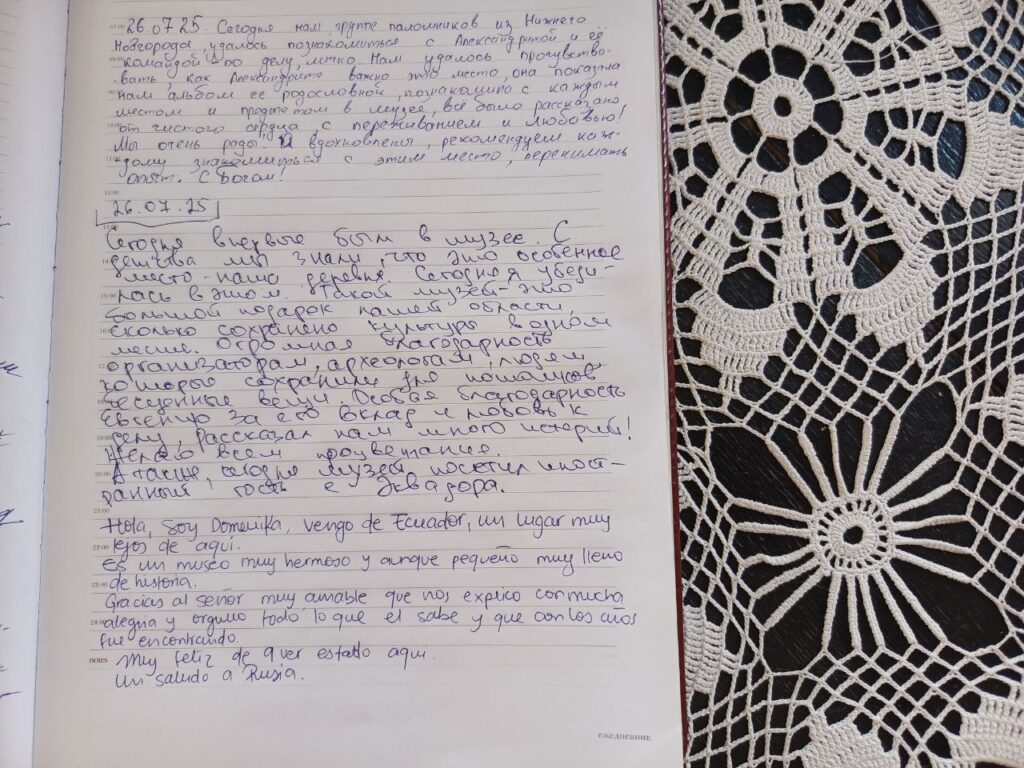 26.07.25. Сегодня нам, группе паломников из Нижнего
Новгорода, удалось познакомиться с Александритой и её
командой по делу, лично. Нам удалось прочувство-
вать, как Александрите важно это место, она показала
нам альбом её родословной, познакомила с каждым
местом и предметом в музее, всё было рассказано
от чистого сердца с переживанием и любовью!
Мы очень рады. И вдохновления, рекомендуем каж-
дому знакомиться с этим место, перенимать
опыт. С Богом!
26.07.25
Сегодня впервые был в музее. С
детства мы знали, что это особенное
место - наша деревня. Сегодня убеди-
лась в этом. Такой музей - это
большой подарок нашей области,
сколько сохранено культуры в одном
месте. Огромная благодарность
организаторам, археологам, людям,
которые сохранили для потомков
бесценные вещи. Особая благодарность
Евгению за его вклад и любовь к
делу, рассказал нам много историй!
Желаю всем процветания.
А также сегодня музей посетил иност-
ранный гость с Эквадора.
Hola, Soy Domenika, vengo de Ecuador, un lugar muy
lejos de aqui.
Es un museo muy hermoso y aunque pequeño muy lleno
de historia.
Gracias al señor muy amable que nos explico con mucha
alegria y orgullo todo lo que el sabe y que con los años
fue encontrando.
Muy feliz de haber estado aqui.
Un saludo a Rusia.
12:00
13:00
14:00
15:00
16:00
17:00
18:00
19:00
20:00
21:00
22:00
23:00
24:00
notes
ежедневник